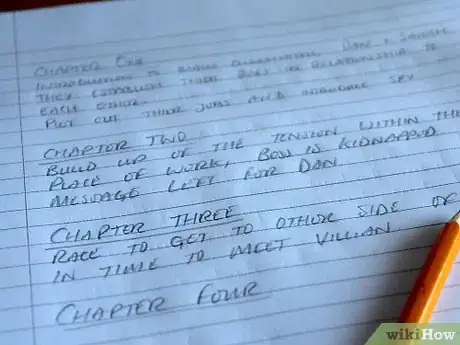 CHAPTER ONE
INTRODUCTION TO MAIN CHARACTERS, DAN + 
THEY ESTABLISH THEIR RELATIONSHIP TO
EACH OTHER.
PLOT OUT THEIR JOBS AND INTRODUCE SPY
CHAPTOR TWO
BUILD UP OF THE TENSION WITHIN THE
PLACE OF WORK, BOSS IS KIDNAPPD
MESSAGE LEFT FOR DAN
CHAPTER THREE
RACE TO GET TO OTHER SIDE OF
IN TIME TO MEET VILLIAN
CHAPTER FOUR
wikiHow